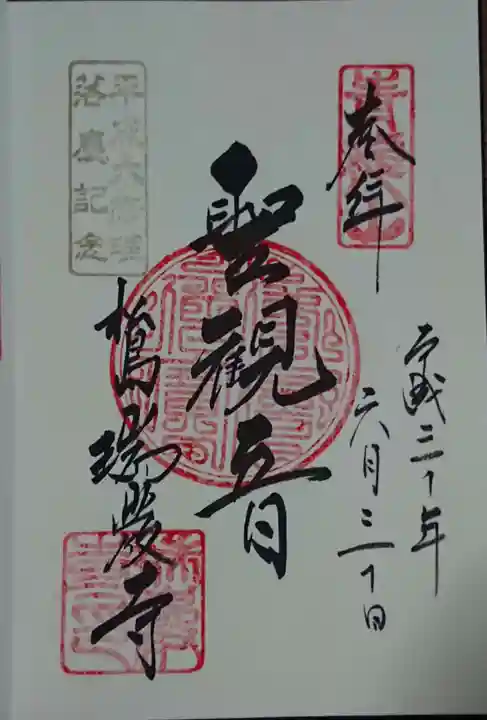 奉拝
平成三十年
六月三十日
聖観音
松島瑞巌寺
平成大修理
落慶記念